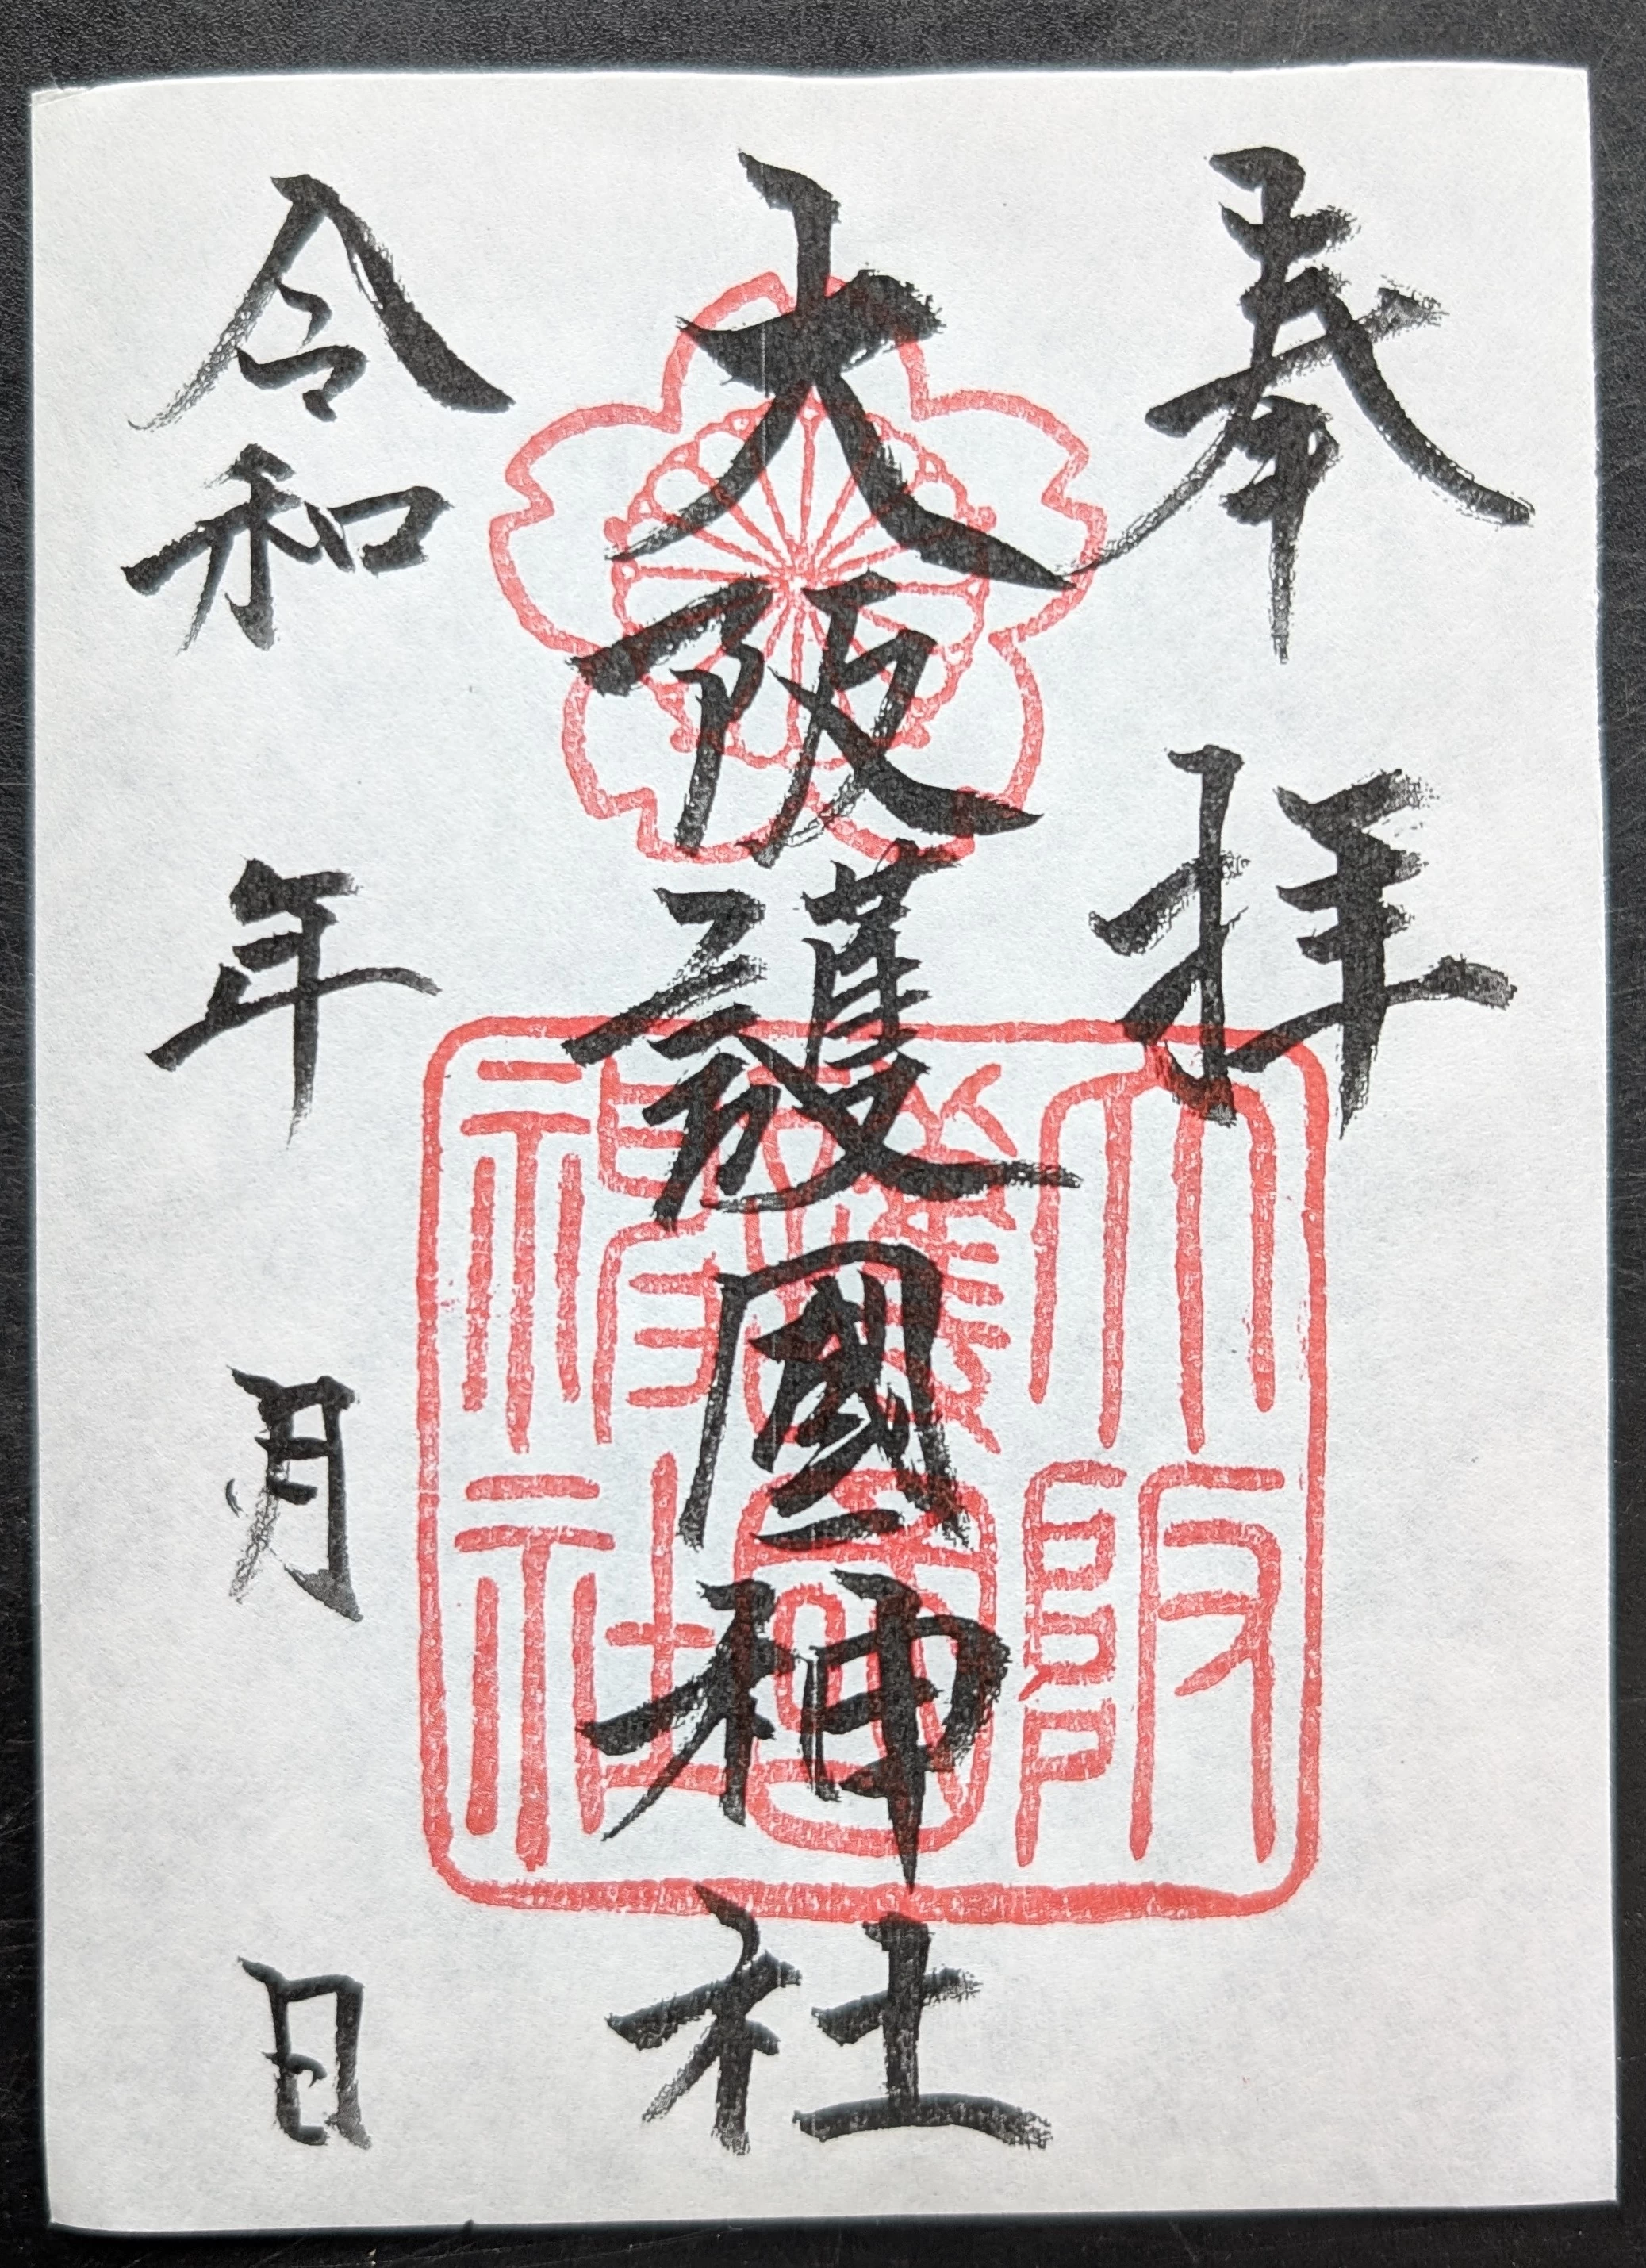 奉拝
大阪護國神社
令和 年 月 日
大阪護國神社